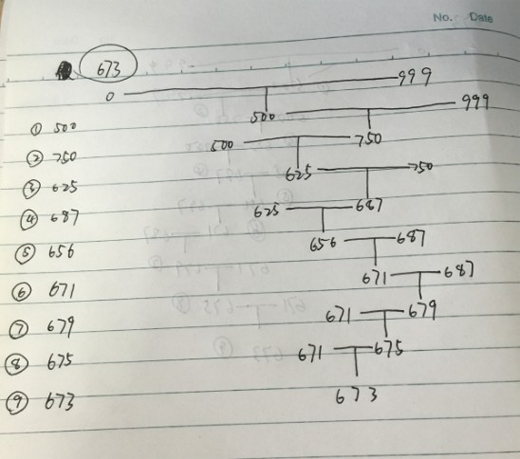 No. Date
673
0 999
① 500 500 999
② 750 500 750
③ 625 625 750
④ 687 625 687
⑤ 656 656 687
⑥ 671 671 687
⑦ 679 671 679
⑧ 675 671 675
⑨ 673 673